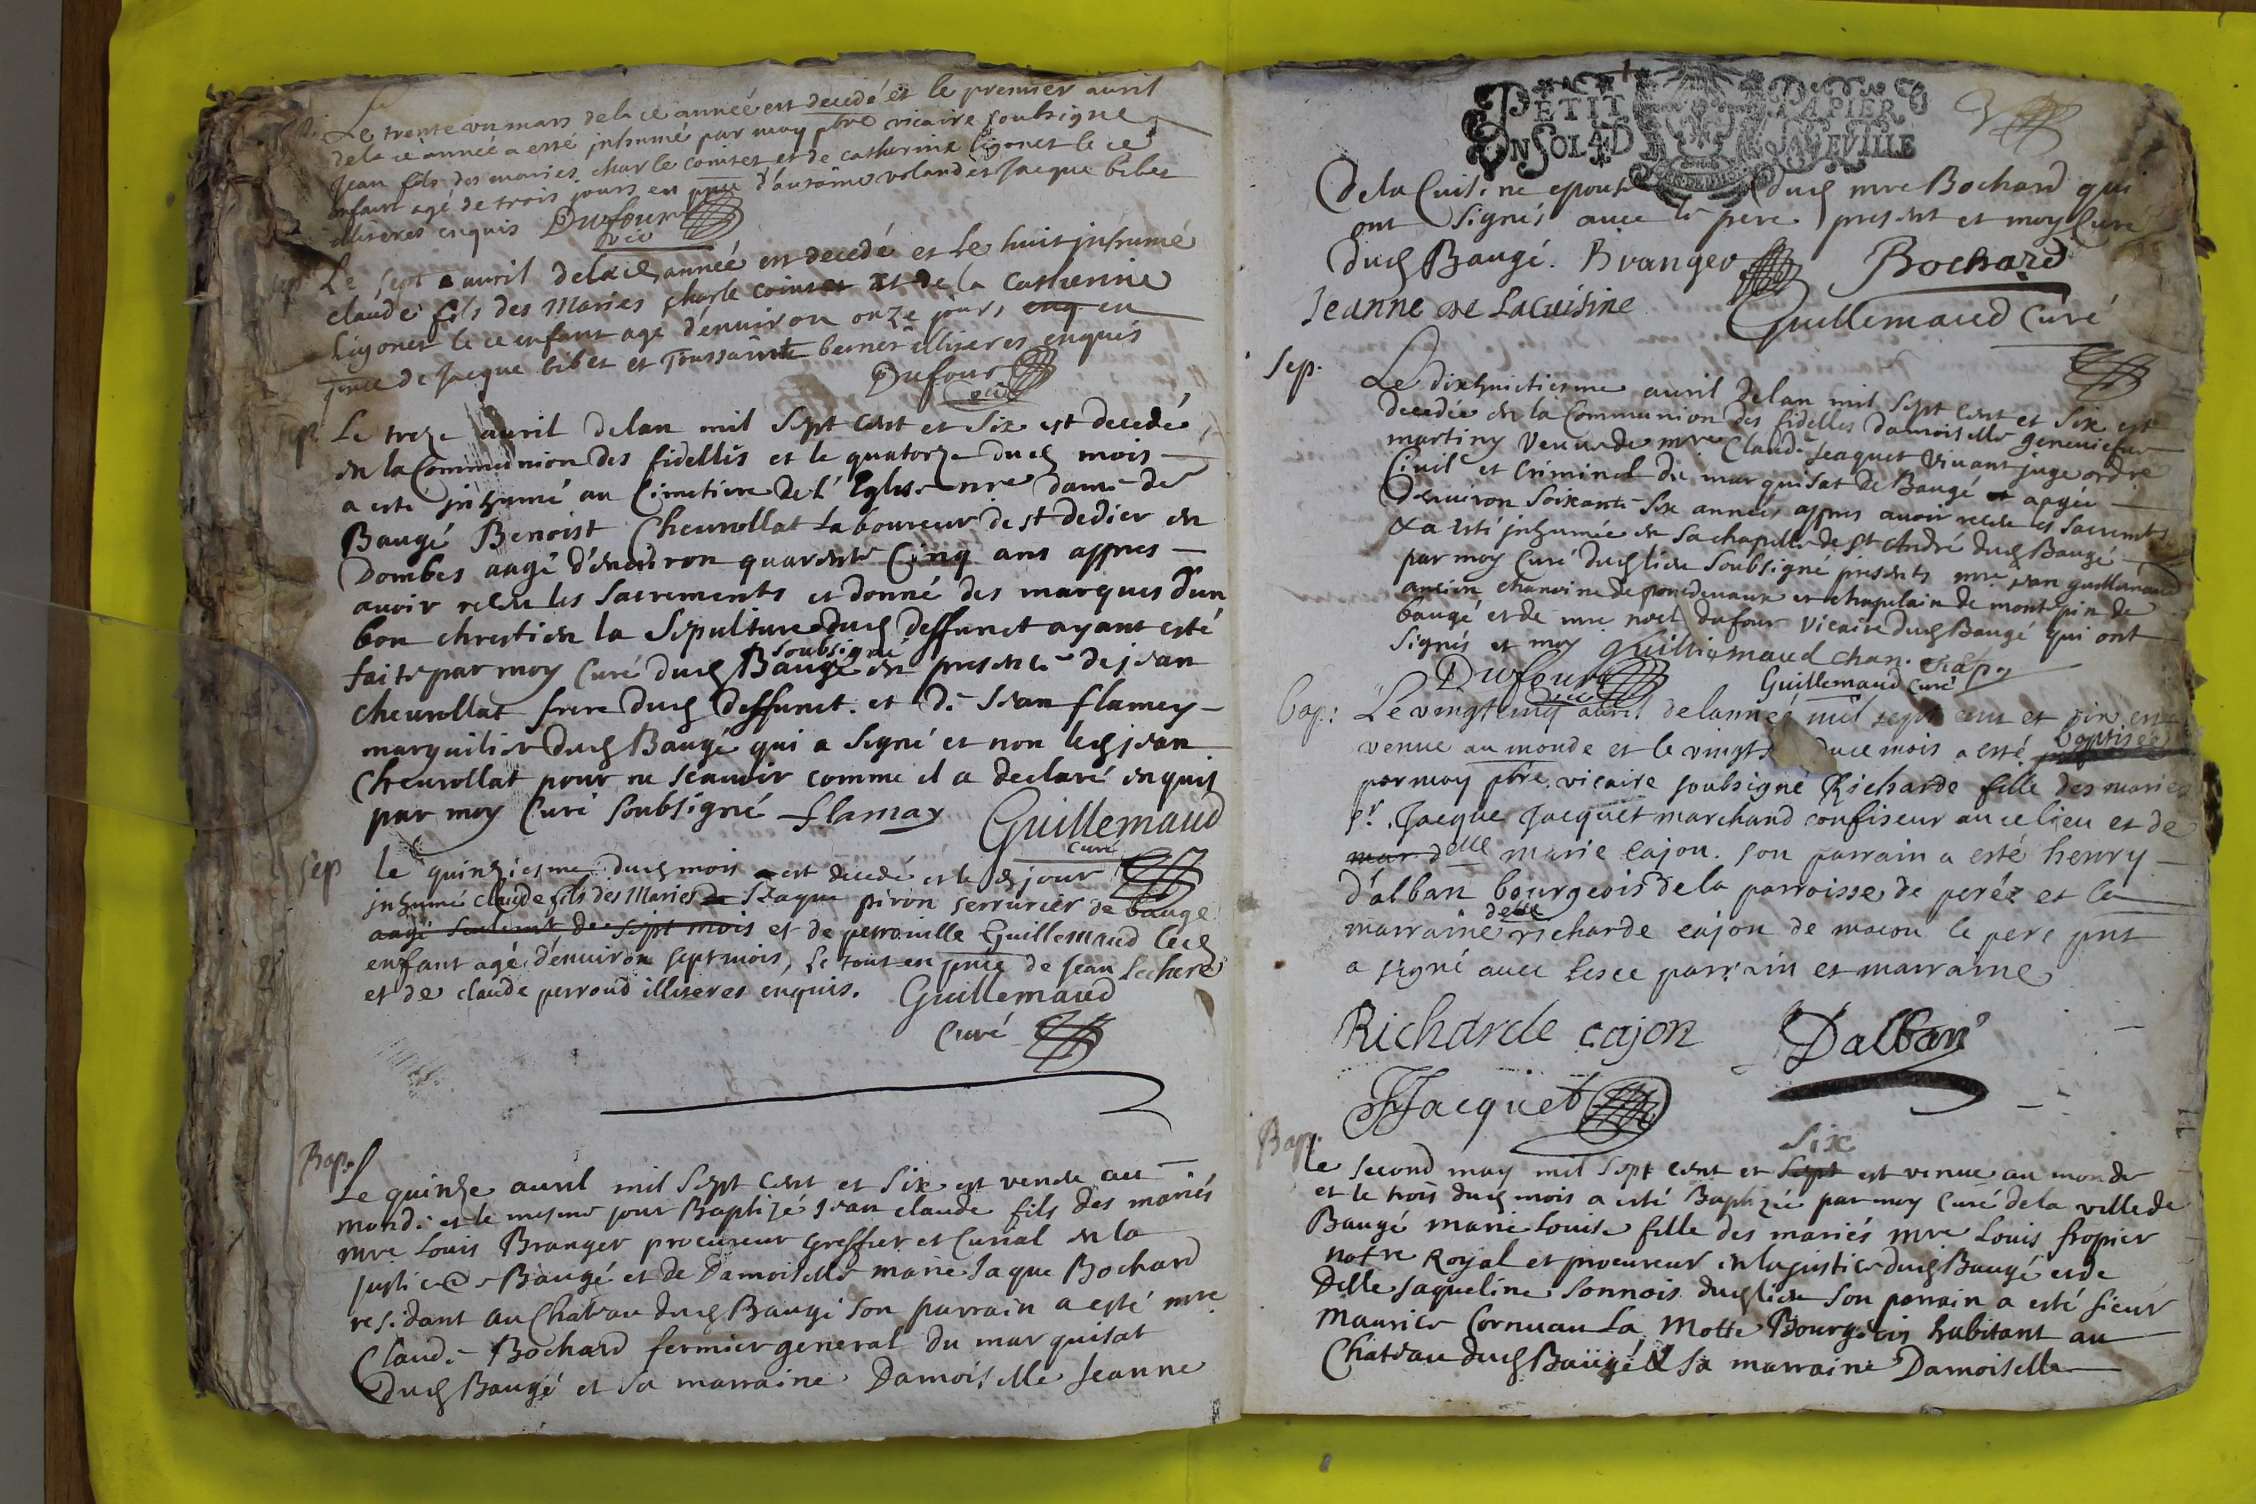 Sep.
Le trente un mars de la ce année est decedé et le premier avril
de la ce année a esté inhumé par moy pbre vicaire soubsigne
Jean fils des maries charle cointet et de catherine ligonet le ce
enfant agé de trois jours en pnce d'antoine voland et Jacque bibet
illiteres enquis Dufour
vic
Sep.
Le sept avril de lad année est decedé et le huit inhumé
claude fils des Maries charle cointet et de la catherine
Ligonet le ce enfant agé d'enuiron onze jours enq en
pnce de Jacque bibet et Toussainte bernet illiteres enquis
Dufour
vic
Sep.
Le treze auril de lan mil sept cent et six est decedé
en la Communion des fidelles et le quatorze dud mois
a esté inhumé au Cimetiere de l'Eglise nre dame de
Baugé Benoist Cheurollat laboureur de st dedier en
Dombes aagé d'enuiron quarente Cinq ans appres
auoir receu les sacrements et donné des marques d'un
bon chrestien la sepulture dud deffunct ayant esté
faite par moy Curé dud Baugé soubsigné en presence de jean
cheurollat frere dud deffunct. et de Jean flamey
marguilier dud Baugé qui a signé et non led jean
Cheurollat pour ne scauoir comme il a declaré enquis
par moy Curé soubsigné flamay Guillemaud
curé
Sep
le quinziesme dud mois est decedé et le d jour
inhumé claude fils des Maries de Jzaque piron serrurier de baugé
aagé seulemt de sept mois et de peronille Guillemaud led
enfant agé d'enuiron sept mois, le tout en pnce de Jean Lechere
et de claude perroud illiteres enquis. Guillemaud
Curé
Bap.
Le quinze auril mil sept cent et six est venu au
monde et le mesme jour Baptizé jean claude fils des mariés
mre Louis Branger procureur greffier et Curial en la
justice de Baugé et de Damoiselle marie Jaque Bochard
residant au Château dud Baugé son parrain a esté mre
Claude Bochard fermier general du marquisat
dud Baugé et sa marraine Damoiselle Jeanne
PETIT PAPIER
UN SOL 4 D LA FEVILLE
De la Cuisine epouse dud mre Bochard qui
ont signés auec le pere present et moy Curé
dud Baugé. Branger Bochard
Jeanne de Lacuisine Guillemaud Curé
Sep.
Le dixhuictiesme auril de lan mil sept cent et six est
decedée en la Communion des fidelles damoiselle geneuiefue
martiny Veuue de mre Claude Jeaquet viuant juge ordre
Ciuil et criminel du marquisat de Baugé aagée
d'enuiron soixante six années appres auoir receu les sacremts
& a esté inhumée en sa chapelle de St André dud Baugé
par moy Curé dud lieu soubsigné presents mre jean guillemaud
ancien chanoine de pondeuaux et chapelain de montepin de
baugé et de mre noel dufour vicaire dud Baugé qui ont
signés et moy guilliemaud chan. chap.
Dufour vic Guillemaud curé
Bap:
Le vingt cinq abril de lannée mil sept cens et six est
venue au monde et le vingt duce mois a esté baptisée
par moy pbre vicaire soubsigné Richarde fille des maries
sr. Jacque Jacquet marchand confiseur au ce lieu et de
mar delle marie cajon. son parrain a esté henry
d'alban bourgeois de la parroisse de peréz et la
marraine delle richarde cajon de macon le pere pnt
a signé auec lesce parrain et marraine
Richarde cajon Dalban
JJacquet
Bap.
Le second may mil sept cent et sept six est venue au monde
et le trois dud mois a esté Baptizée par moy Curé de la ville de
Baugé marie Louise fille des mariés mre Louis fropier
notre Royal et procureur en la justice dud Baugé et de
Delle Jaqueline sonnois dud lieu son parrain a esté sieur
Maurice Cornuau La Motte Bourgeois habitant au
Château dud Baugé & sa marraine Damoiselle